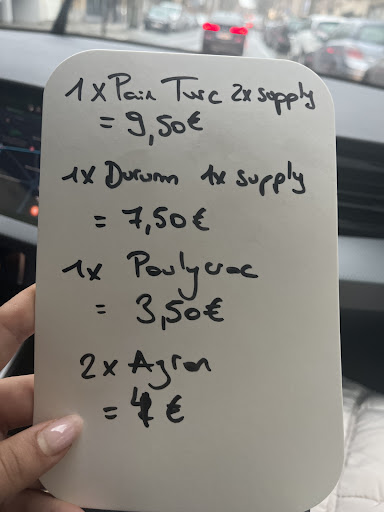 1x Pain Turc 2x supply
= 9,50€
1x Durum 1x supply
= 7,50€
1x Poulycroc
= 3,50€
2x Ayran
= 4 €